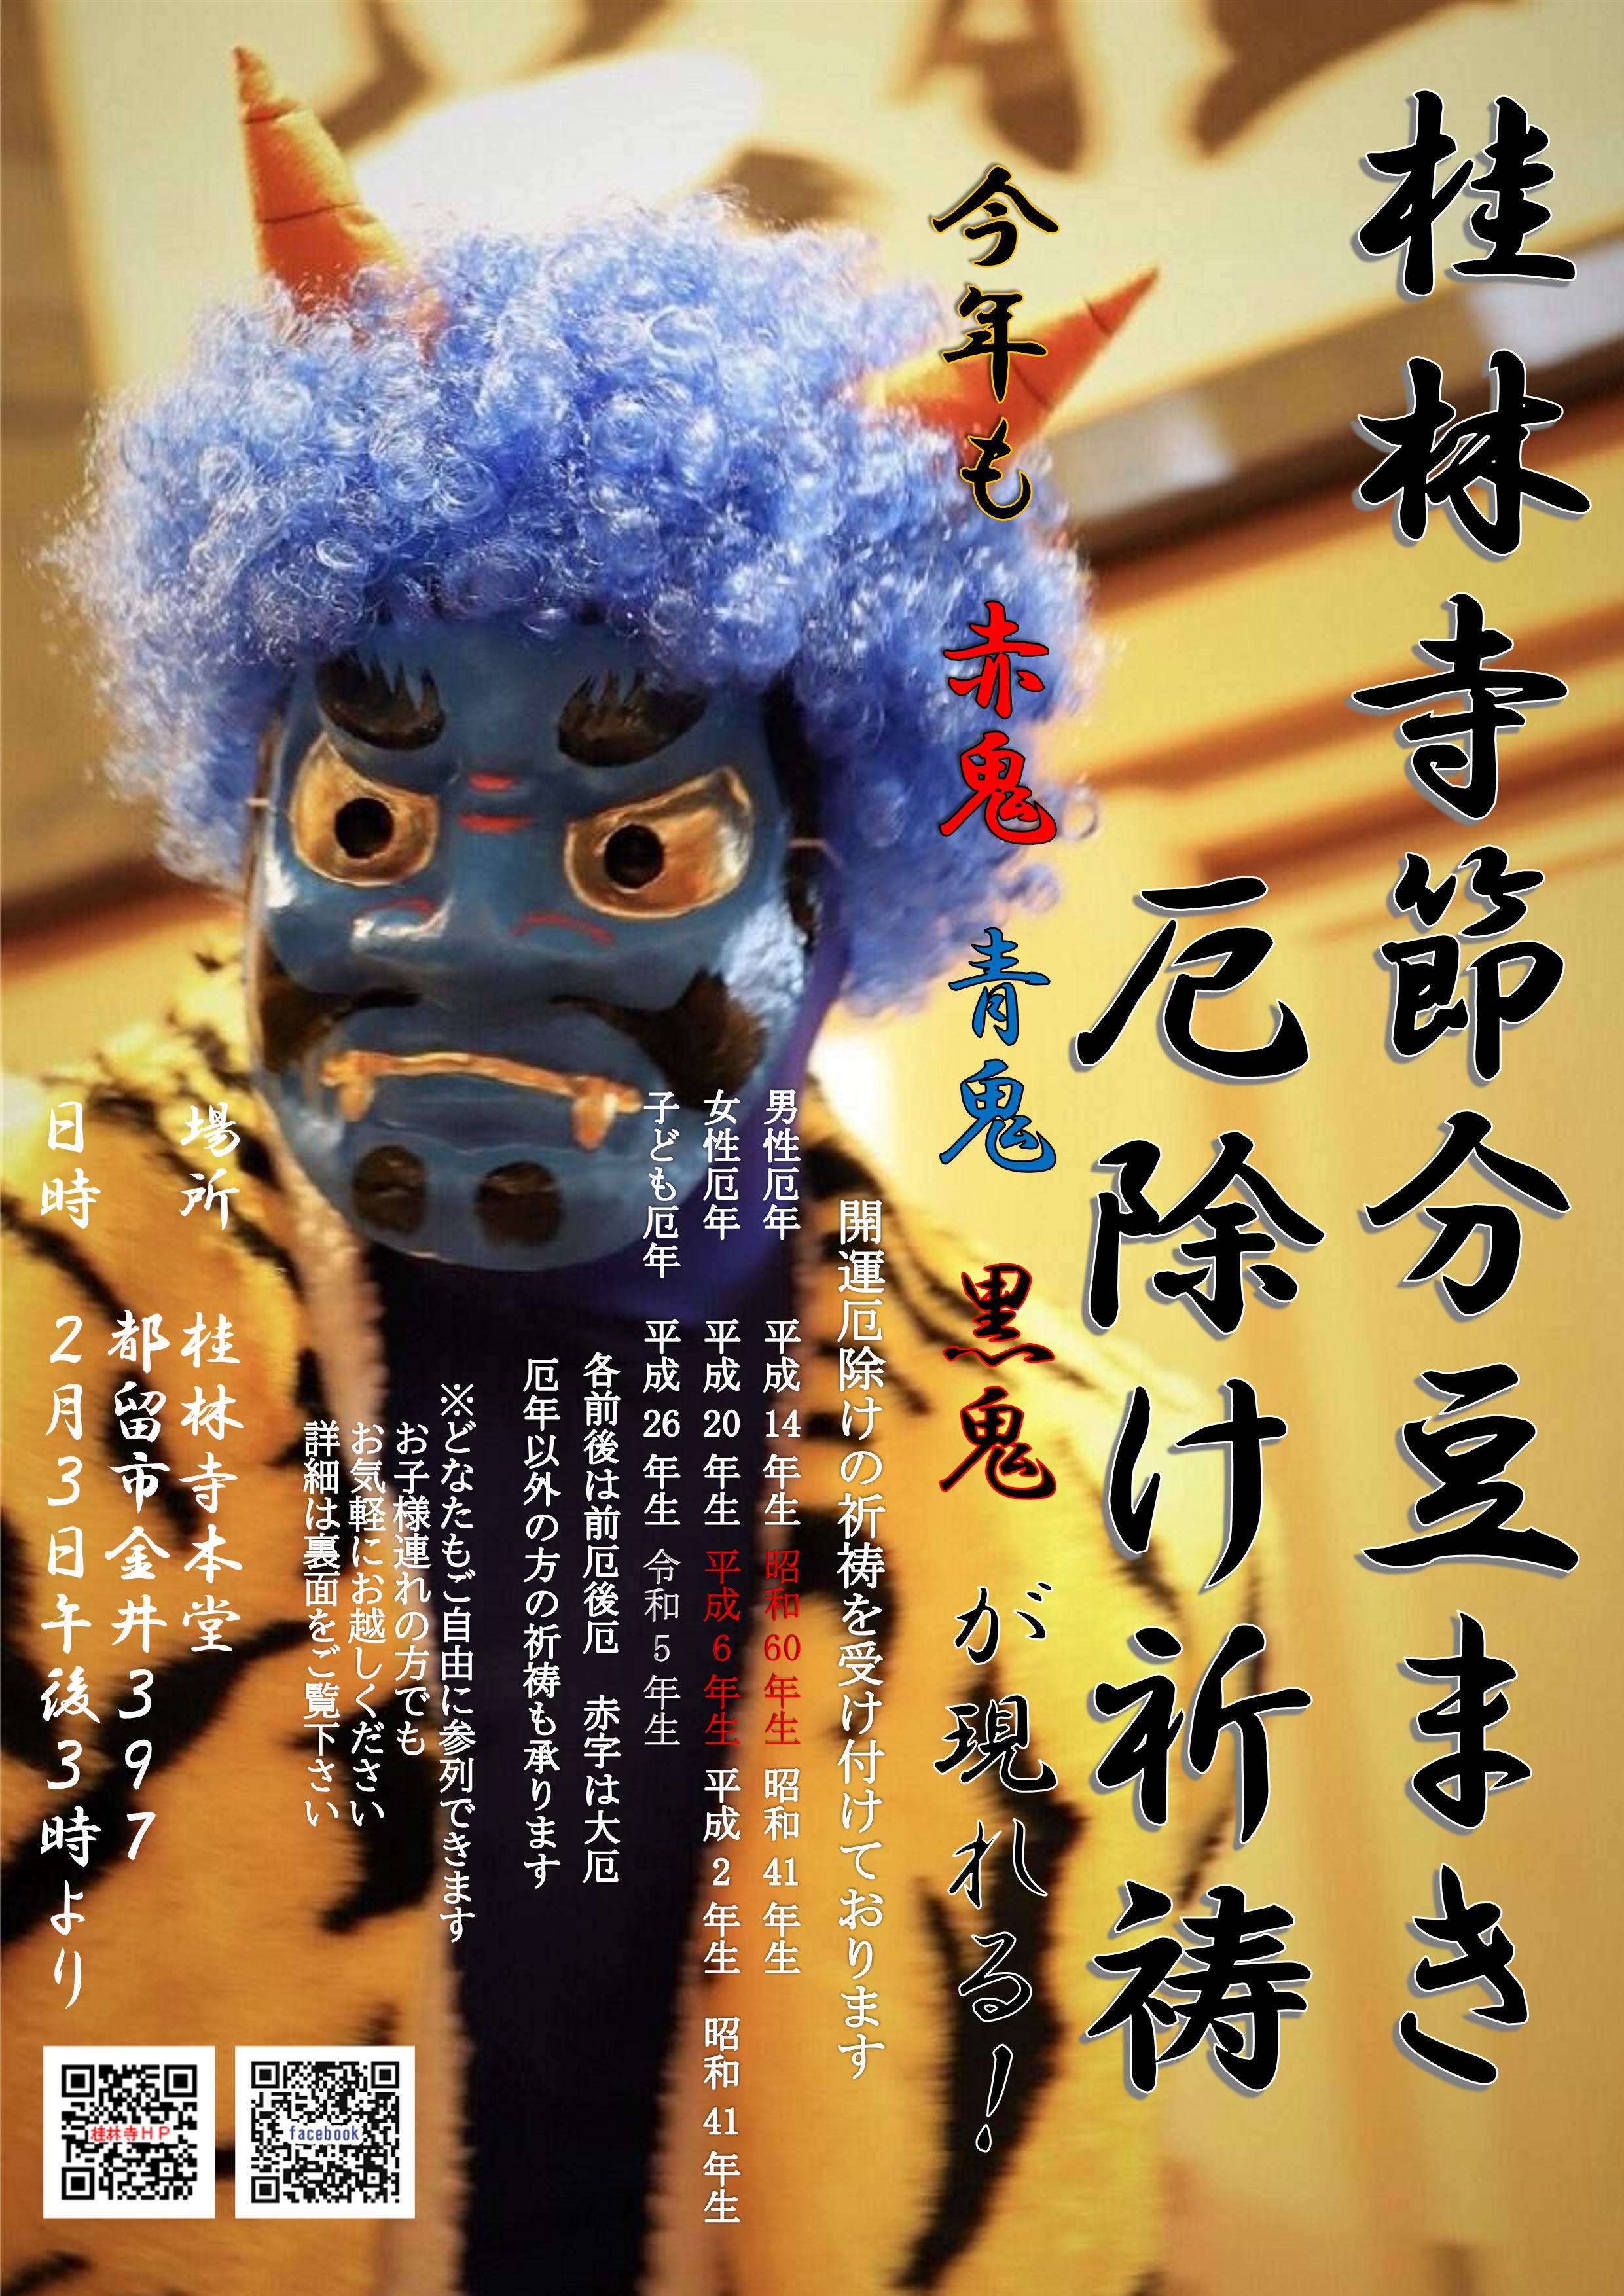 桂林寺節分豆まき
厄除け祈祷
今年も 赤鬼 青鬼 黒鬼 が現れる!
開運厄除けの祈祷を受け付けております
男性厄年 平成14年生 昭和60年生 昭和41年生
女性厄年 平成20年生 平成6年生 平成2年生 昭和41年生
子ども厄年 平成26年生 令和5年生
各前後は前厄後厄 赤字は大厄
厄年以外の方の祈祷も承ります
※どなたもご自由に参列できます
お子様連れの方でも
お気軽にお越しください
詳細は裏面をご覧下さい
場所 桂林寺本堂
都留市金井397
日時 2月3日午後3時より
桂林寺HP
facebook